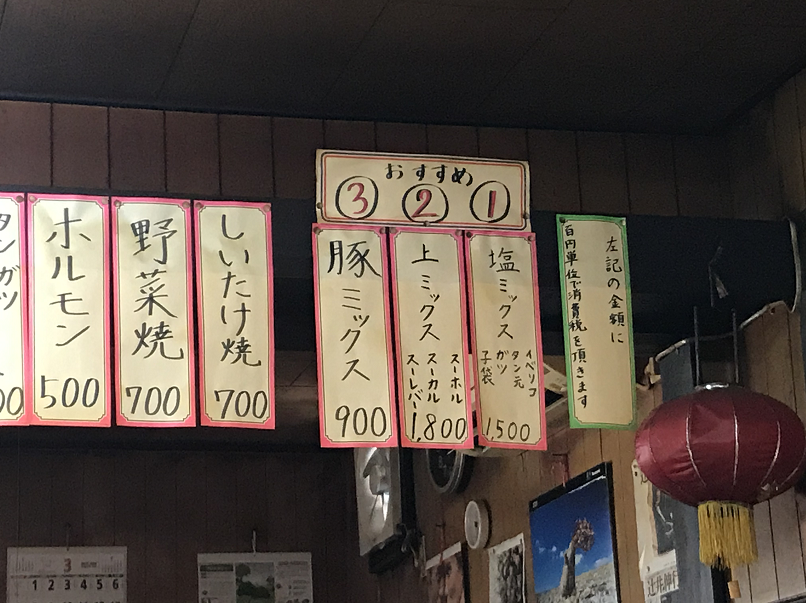 おすすめ
③ ② ①
左記の金額に
百円単位で消費税を頂きます
塩ミックス
イベリコ
タン元
ガツ
子袋
1,500
上ミックス
スーホル
スーカル
スーレバー
1,800
豚ミックス
900
しいたけ焼
700
野菜焼
700
ホルモン
500
タンガツ
00
3
1 2 3 4 5 6